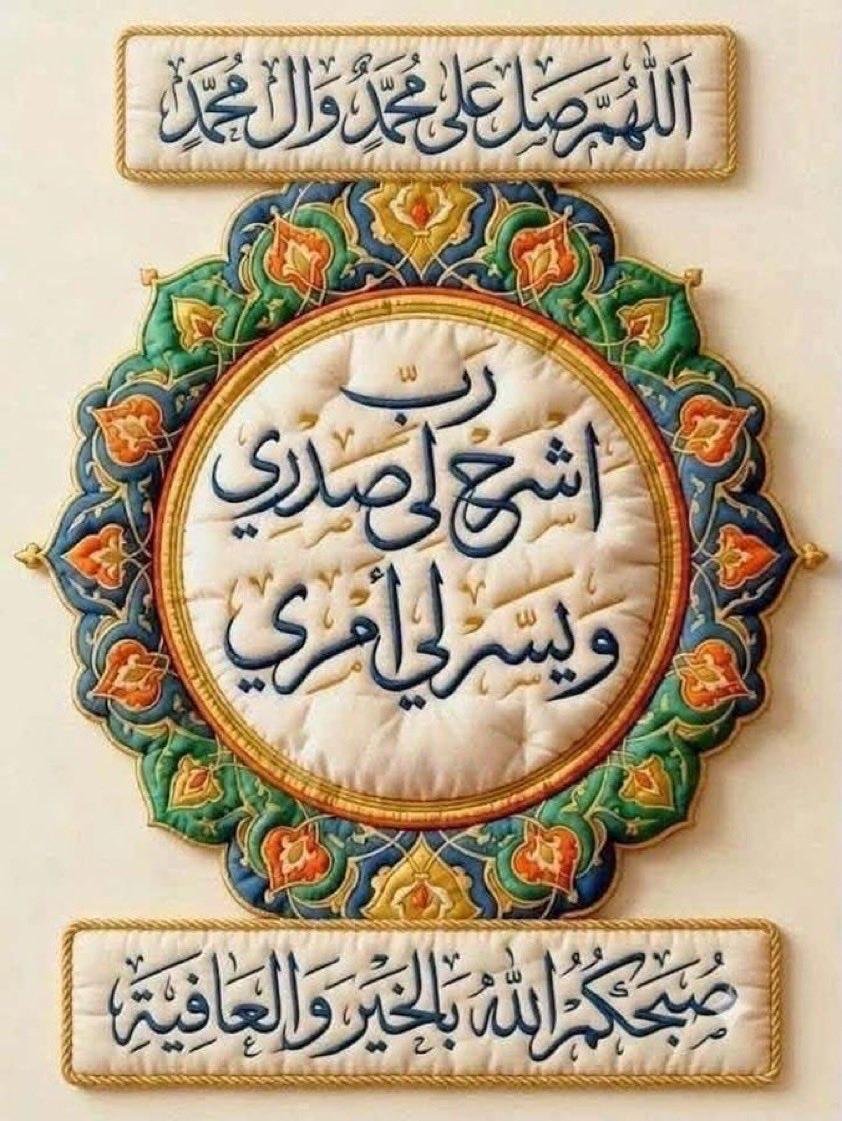 اللَّهُمَّ صَلِ عَلَى مُحَمَّدٍ وَالِ مُحَمَّدٍ
رَبِّ
اشرح لي صدري
ويسّر لي أمري
صُبحكُمُ اللهُ بَالخَيْرِ وَالعَافِيَةِ